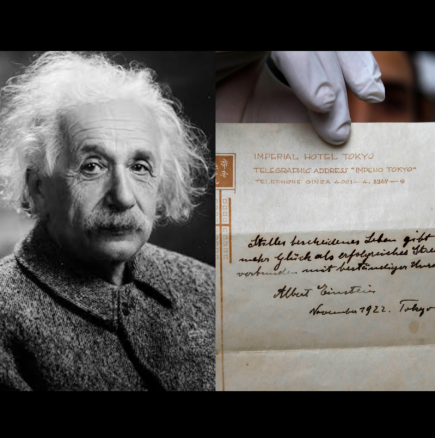 IMPERIAL HOTEL TOKYO
TELEGRAPHIC ADDRESS "IMPEHO TOKYO"
TELEPHONE GINZA
Stilles bescheidenes Leben gibt
mehr Glück als erfolgreiches Stre
verbunden mit beständiger Unru
Albert Einstein
November 1922. Tokyo